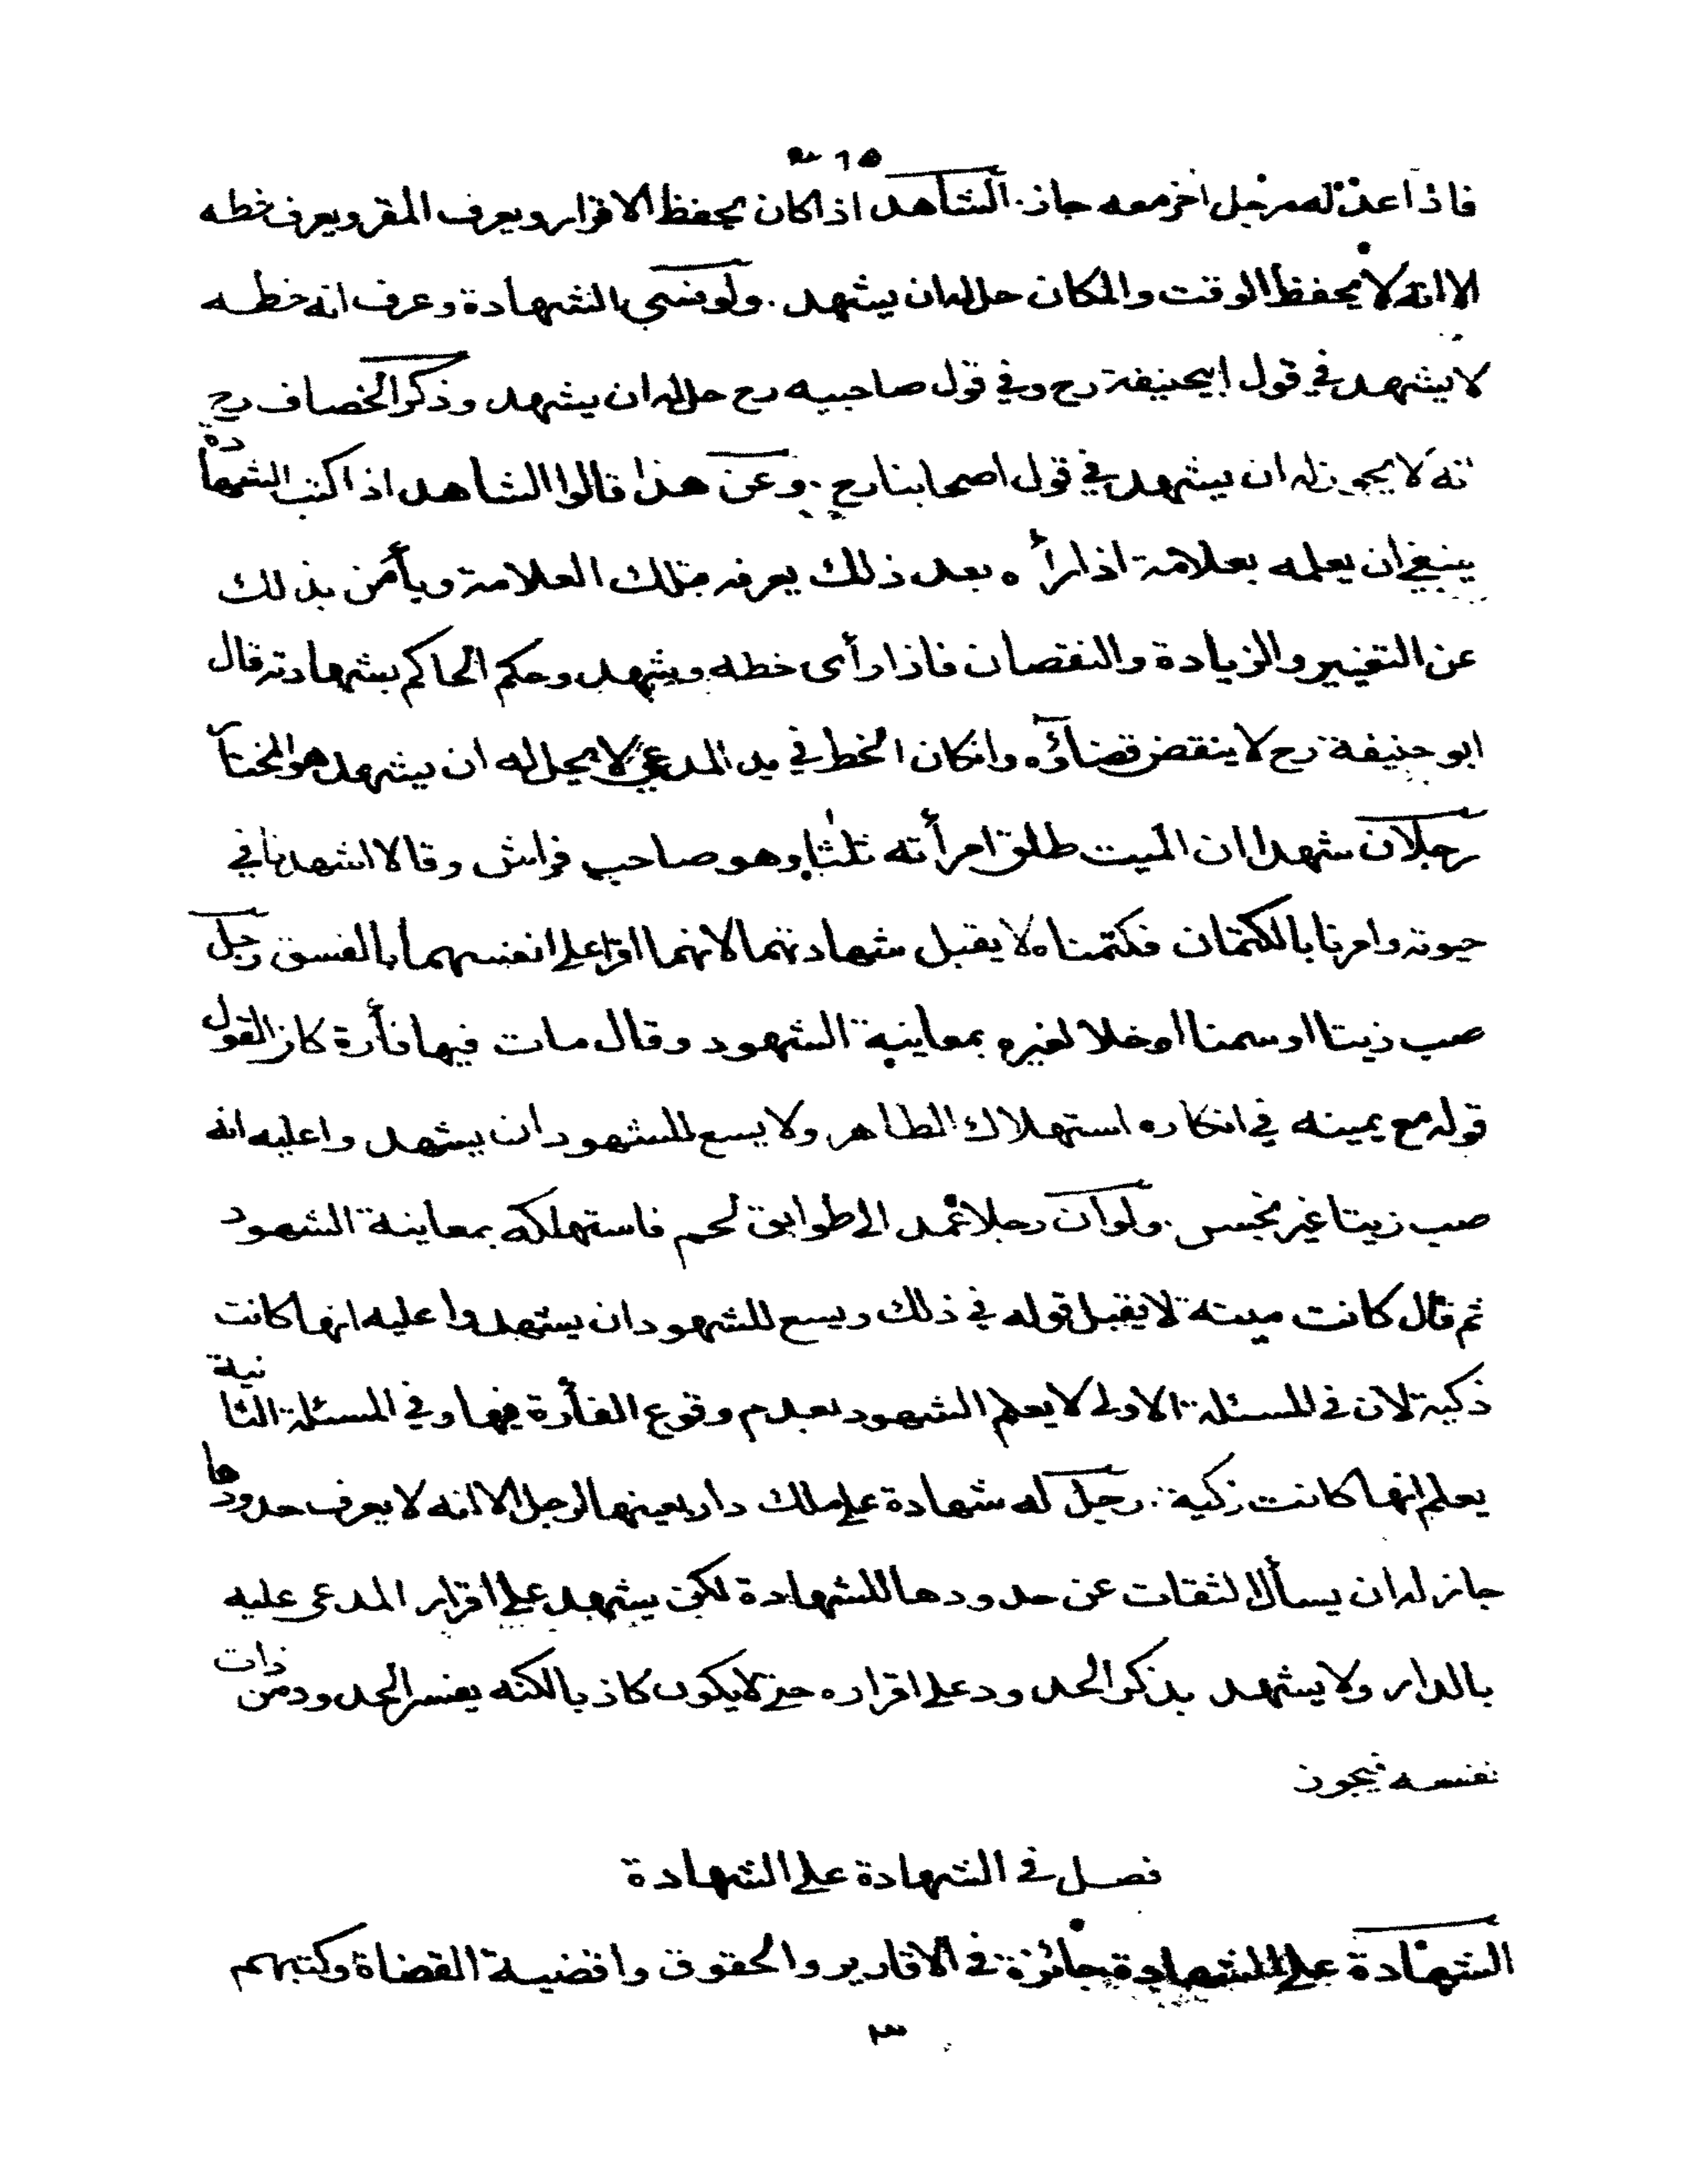 فاذا عدله رجل اخر معه جاز. الشاهد اذا كان يحفظ الاقرار ويعرف المقر ويعرف خطه
الا انه لا يحفظ الوقت والمكان حل له ان يشهد. ولو نسى الشهادة وعرف انه خطه
لا يشهد في قول ابيحنيفة رح وفي قول صاحبيه رح حل له ان يشهد وذكر الخصاف رح
انه لا يجوز له ان يشهد في قول اصحابنا رح. وعن هذا قالوا الشاهد اذا كتب الشهادة
ينبغي ان يعلمه بعلامة اذا رأه بعد ذلك يعرفه بتلك العلامة ويأمن بذلك
عن التغيير والزيادة والنقصان فاذا رأى خطه ويشهد وحكم الحاكم بشهادته قال
ابو حنيفة رح لا ينقض قضاؤه وانكان الخط في يد المدعي لا يحل له ان يشهد هو المختار
رجلان شهدا ان الميت طلق امرأته ثلثا وهو صاحب فراش وقالا اشهدنا في
حيوته وامرنا بالكتمان فكتمناه لا يقبل شهادتهما لانهما اقرا على انفسهما بالفسق رجل
صب زيتا او سمنا او خلا لغيره بمعاينة الشهود وقال مات فيها فأرة كان القول
قوله مع يمينه في انكاره استهلاك الطاهر ولا يسع للشهود ان يشهد واعليه انه
صب زيتا غير نجس. ولو ان رجلا عمد الى طوابق لحم فاستهلكه بمعاينة الشهود
ثم قال كانت ميتة لا يقبل قوله في ذلك ويسع للشهود ان يشهدوا عليه انها كانت
ذكية لان في المسئلة الاولى لا يعلم الشهود بعدم وقوع الفأرة فيها وفي المسئلة الثانية
يعلم انها كانت زكية. رجل له شهادة على ملك دار بعينها لرجل الا انه لا يعرف حدودها
جاز له ان يسأل الثقات عن حدودها للشهادة لكن يشهد على اقرار المدعى عليه
بالدار ولا يشهد بذكر الحدود على اقراره حتى لا يكون كاذبا لكنه يفسر الحدود من ذات
نفسه فيجوز
فصل في الشهادة على الشهادة
الشهادة على الشهادة جائزة في الاقارير والحقوق واقضية القضاة وكتبهم